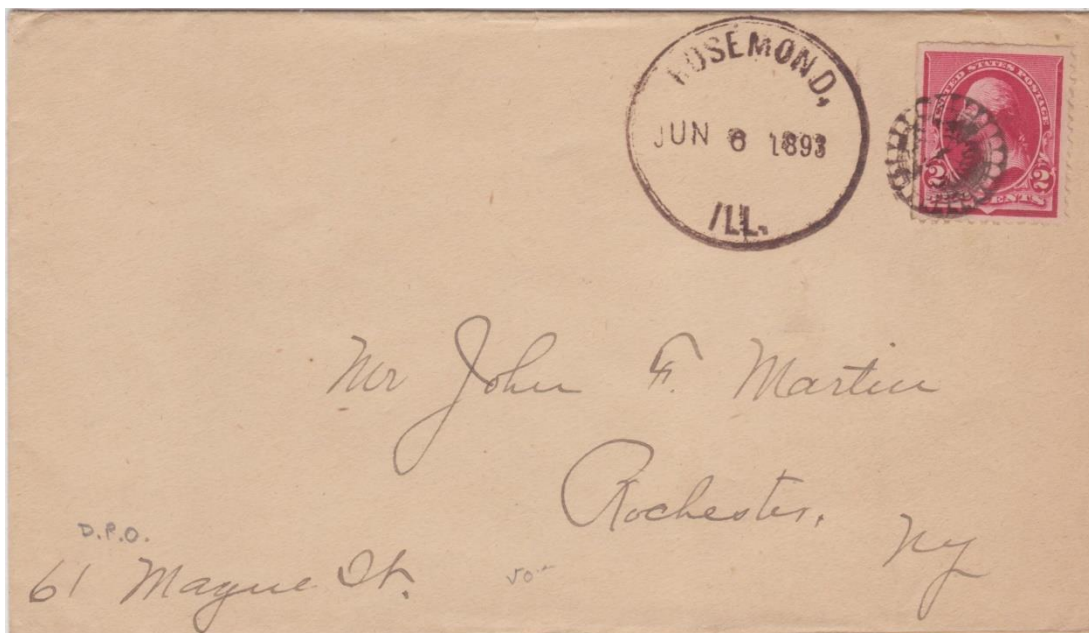 ROSEMOND,
JUN 6 1893
ILL.
UNITED STATES POSTAGE
2 2
CENTS
Mr John F. Martin
Rochester,
Ny
D.P.O.
61 Magne St.